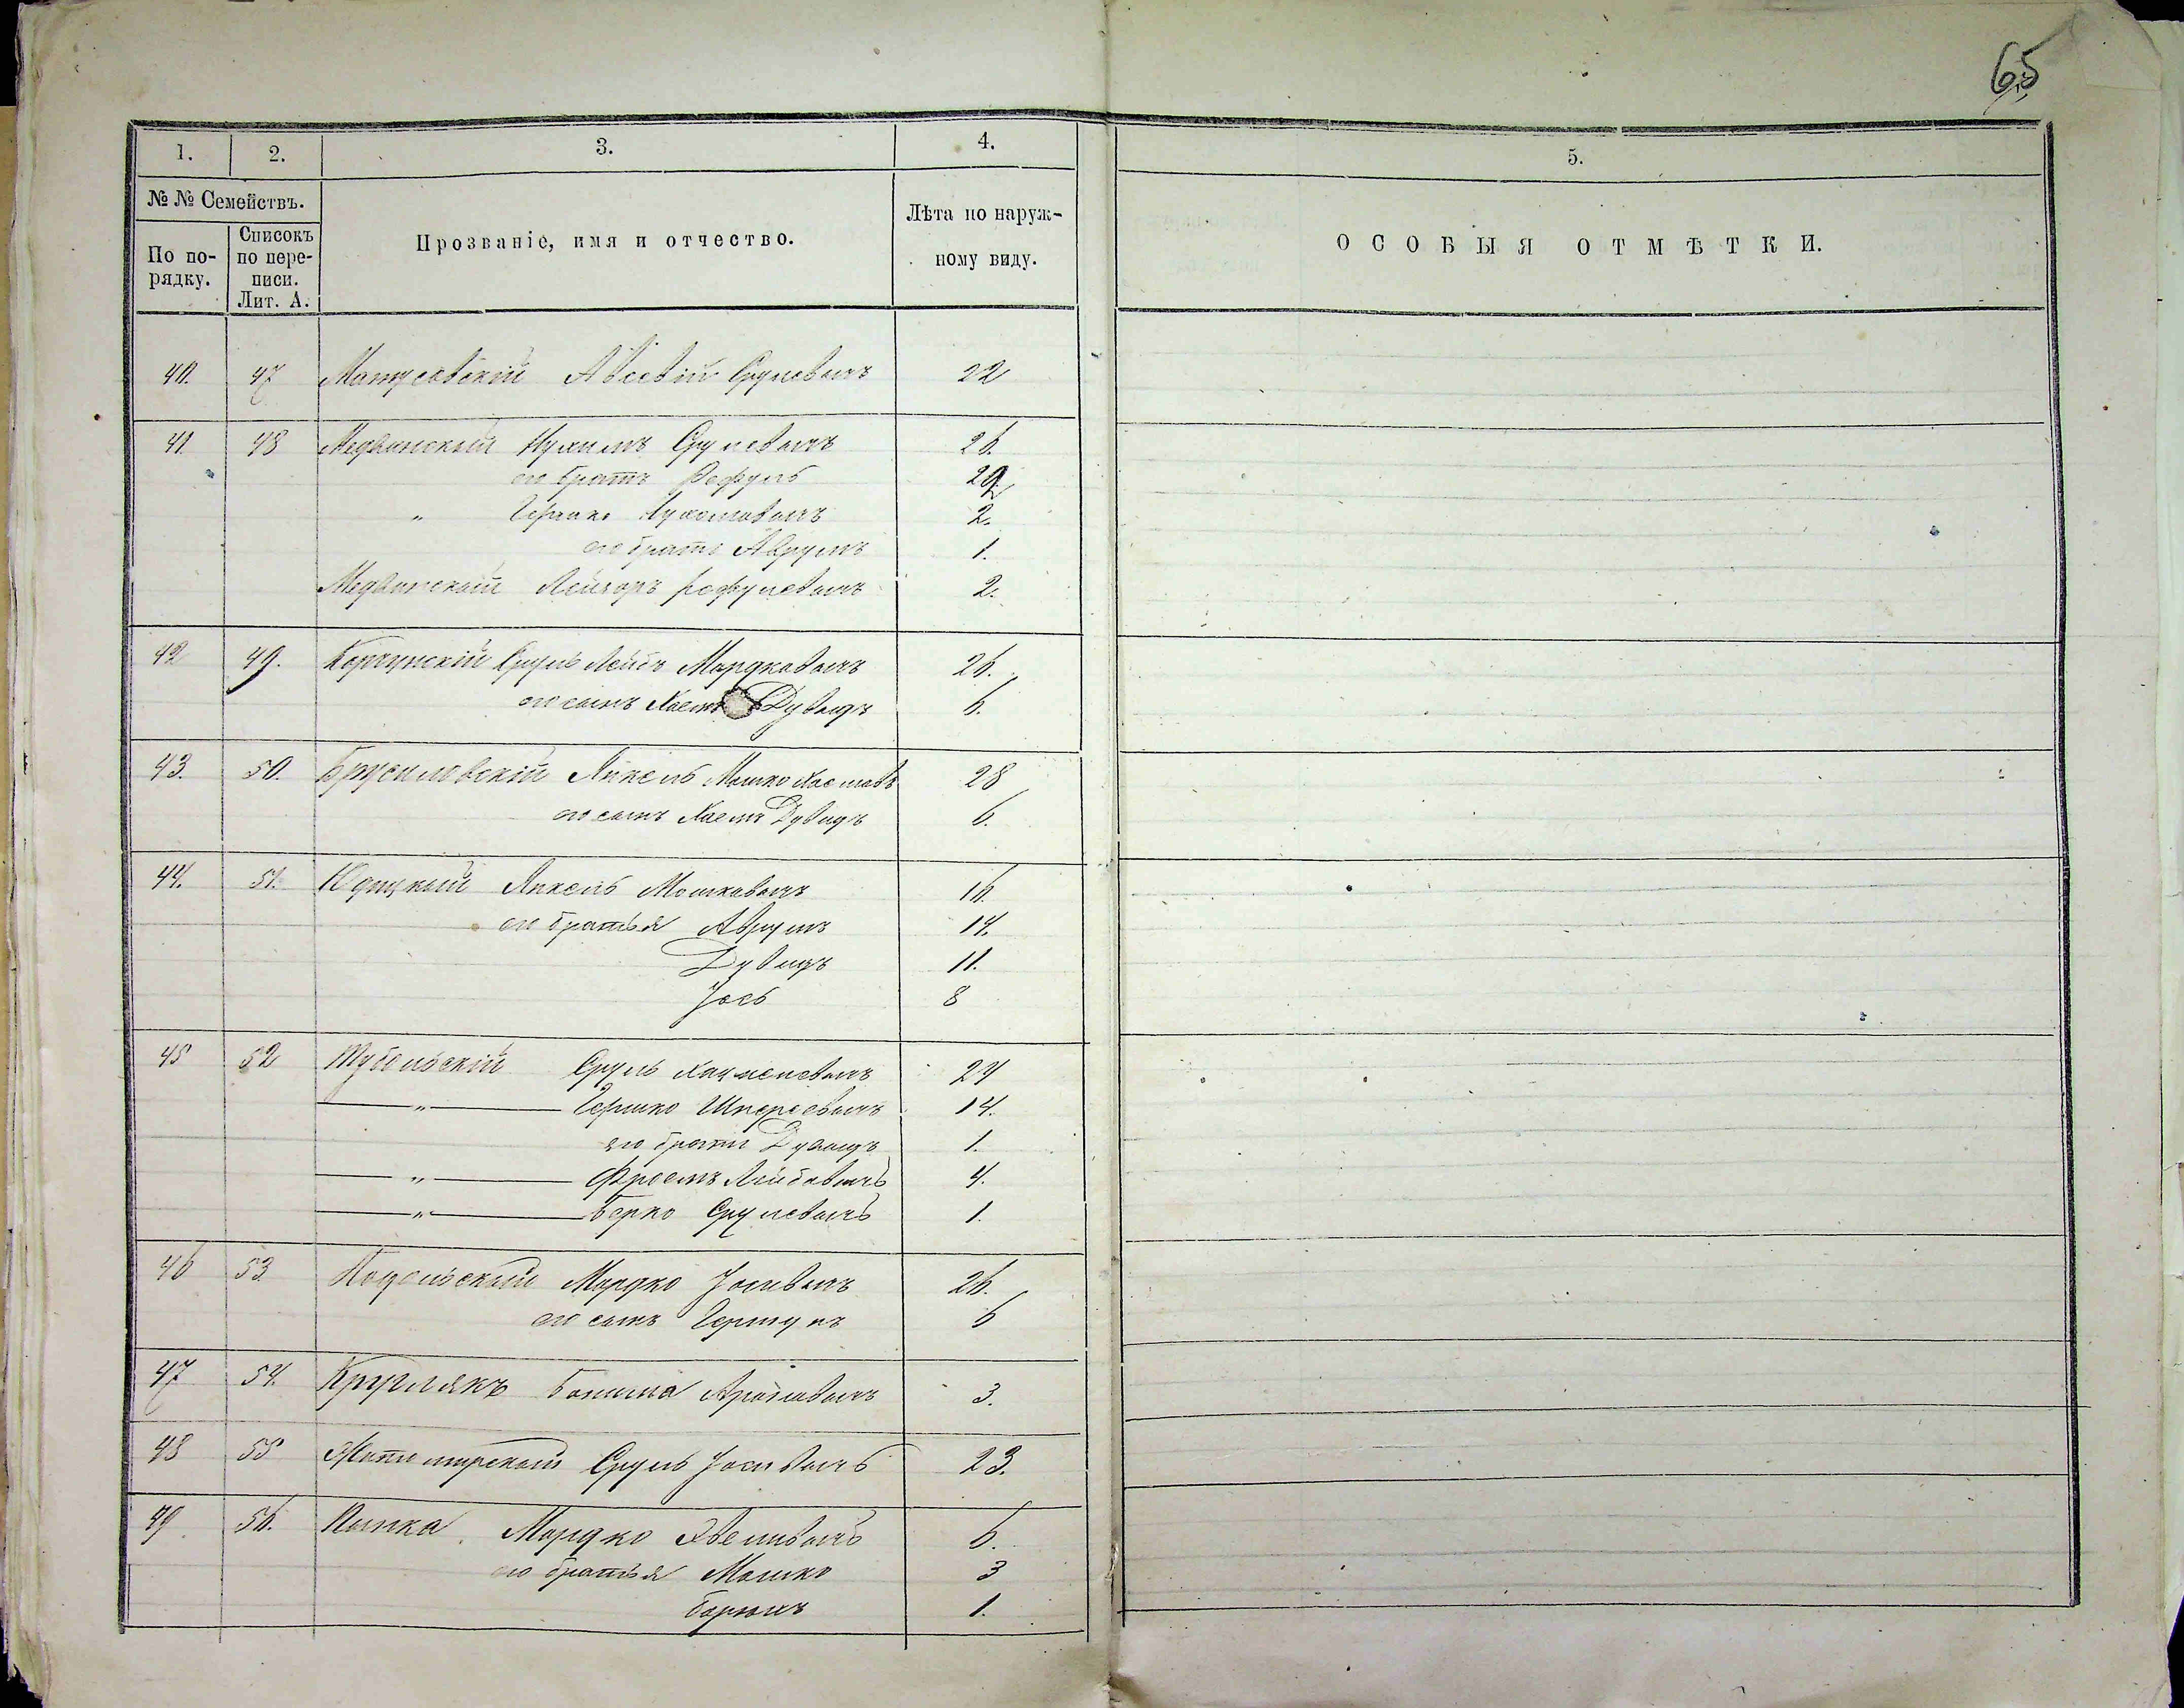 65
1. 2. 3. 4. 5.
№ № Семействъ.
По порядку.
Списокъ по переписи. Лит. А.
Прозваніе, имя и отчество.
Лѣта по наруж-
ному виду.
ОСОБЫЯ ОТМѢТКИ.
40. 47 Матусовскій Сруловичъ 22
41. 48 Медвинскій Нухимъ Срулевичъ 26.
его братъ Рефулъ 29.
" Гершко Нухимовичъ 2.
его братъ Аврумъ 1.
Медвинскій Лейзоръ Рефулевичъ 2.
42 49. Корсунскій Сруль Лейбъ Мордковичъ 26.
его сынъ Хаемъ Дувидъ 6.
43. 50. Брусиловскій Янкель Мошко Хаемовъ 28
его сынъ Хаемъ Дувидъ 6.
44. 51. Юдицкій Янкель Мошковичъ 16.
его братья Аврумъ 14.
Дувидъ 11.
Іось 8
45 52 Тубельскій Сруль 24
— " — Гершко 14.
его братъ Дувидъ 1.
— " — Фроемъ Лейбовичъ 4.
— " — Берко Срулевичъ 1.
46 53. Мордко Іосивичъ 26.
его сынъ Гершунъ 6
47 54. Круглякъ 3.
48 55 Житомирскій Сруль Іосивичъ 23.
49. 56. Мордко 6.
его братья Мошко 3
Борухъ 1.